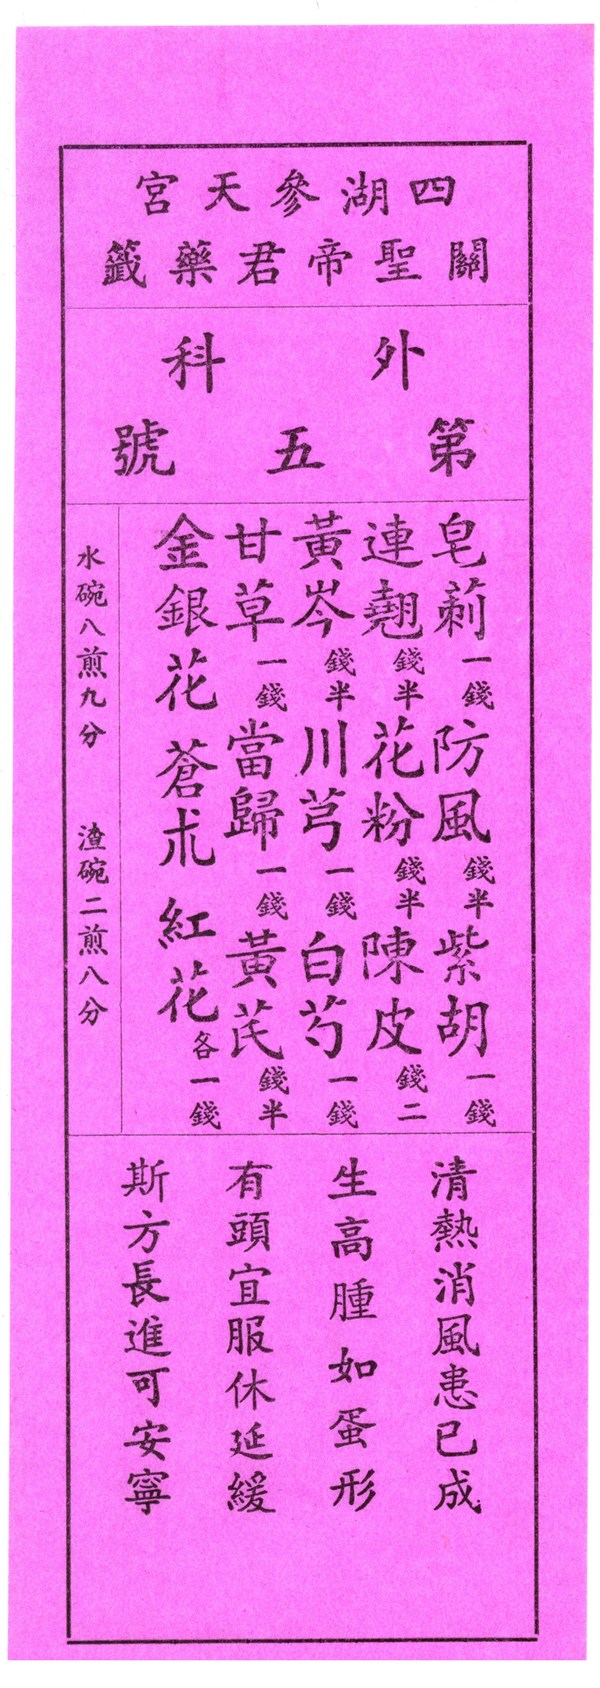 四湖參天宮
關聖帝君藥籤
外科
第五號
皂莿一錢 防風錢半 紫胡一錢
連翹錢半 花粉錢半 陳皮錢二
黃岑錢半 川芎一錢 白芍一錢
甘草一錢 當歸一錢 黃芪錢半
金銀花 蒼朮 紅花各一錢
水碗八煎九分 渣碗二煎八分
清熱消風患已成
生高腫如蛋形
有頭宜服休延緩
斯方長進可安寧